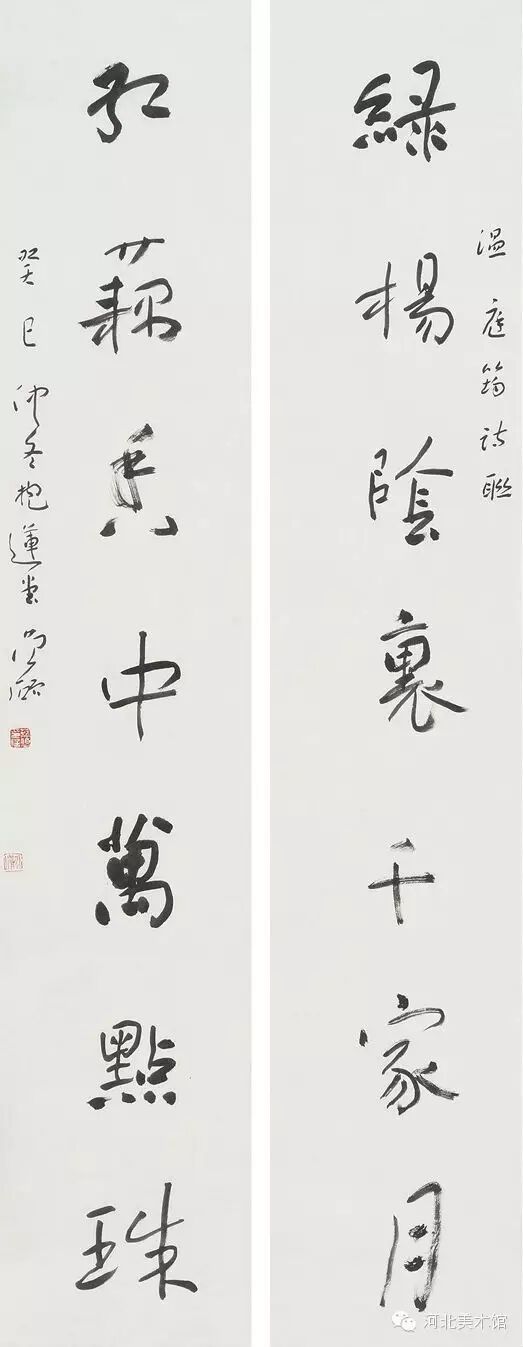 温庭筠詩聯
綠楊陰裏千家月
紅藕香中萬點珠
癸巳仲冬抱蓮堂
河北美术馆